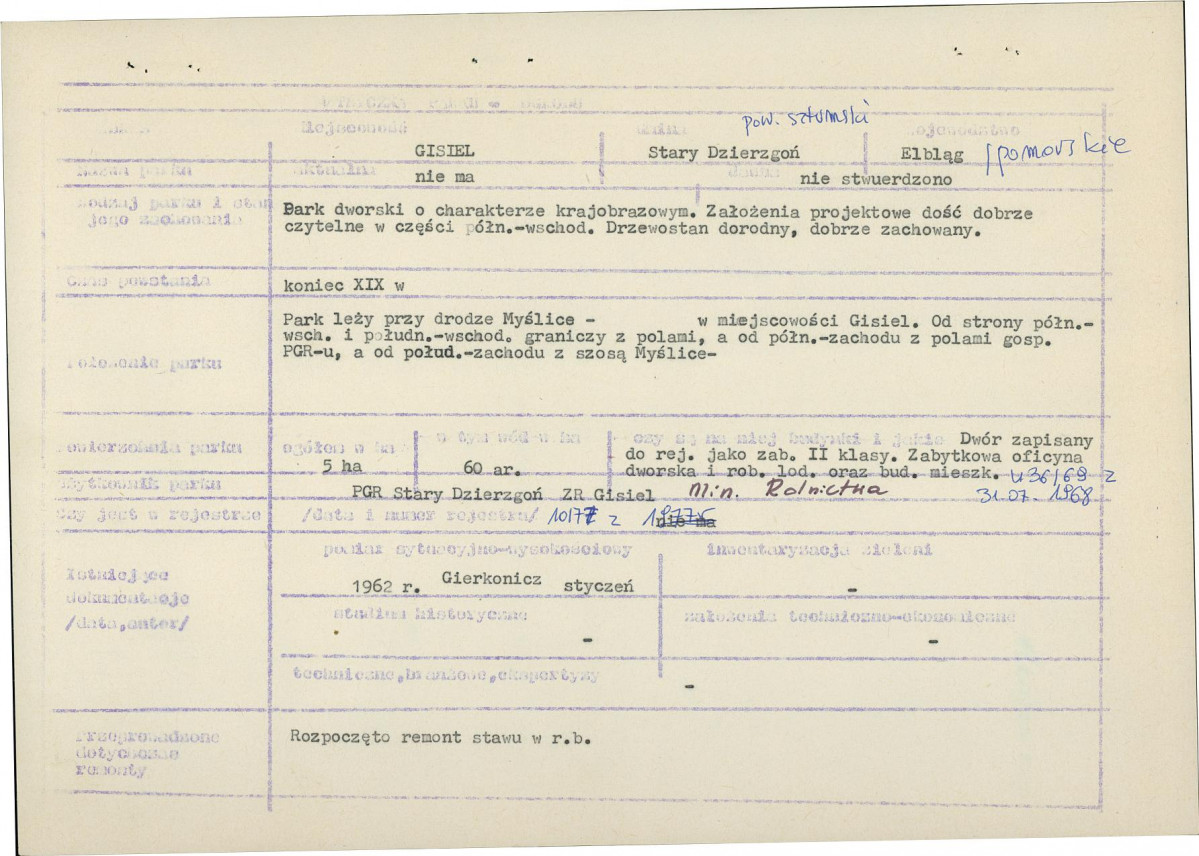 pow. sztumski
Miejscowość gmina województwo
GISIEL Stary Dzierzgoń Elbląg /pomorskie
Nazwa parku aktualna dawna
nie ma nie stwuerdzono
Rodzaj parku i stan jego zachowania
Park dworski o charakterze krajobrazowym. Założenia projektowe dość dobrze
czytelne w części półn.-wschod. Drzewostan dorodny, dobrze zachowany.
Czas powstania
koniec XIX w
Położenie parku
Park leży przy drodze Myślice - w miejscowości Gisiel. Od strony półn.-
wsch. i południ.-wschod. graniczy z polami, a od półn.-zachodu z polami gosp.
PGR-u, a od połud.-zachodu z szosą Myślice-
Powierzchnia parku ogółem w ha w tym wód w ha czy są na niej budynki i jakie Dwór zapisany
do rej. jako zab. II klasy. Zabytkowa oficyna
5 ha 60 ar. dworska i rob. lod. oraz bud. mieszk. N36/69 z
Użytkownik parku
PGR Stary Dzierzgoń ZR Gisiel Min. Rolnictwa 31.07.1968
Czy jest w rejestrze /data i numer rejestru/ 10/77 z nie ma
pomiar sytuacyjno-wysokościowy inwentaryzacja zieleni
Istniejące
dokumentacje
/data, autor/
1962 r. Gierkonicz styczeń -
studium historyczne założenia techniczno-ekonomiczne
- -
techniczne, branżowe, ekspertyzy
-
Przeprowadzone
dotychczas
remonty
Rozpoczęto remont stawu w r.b.